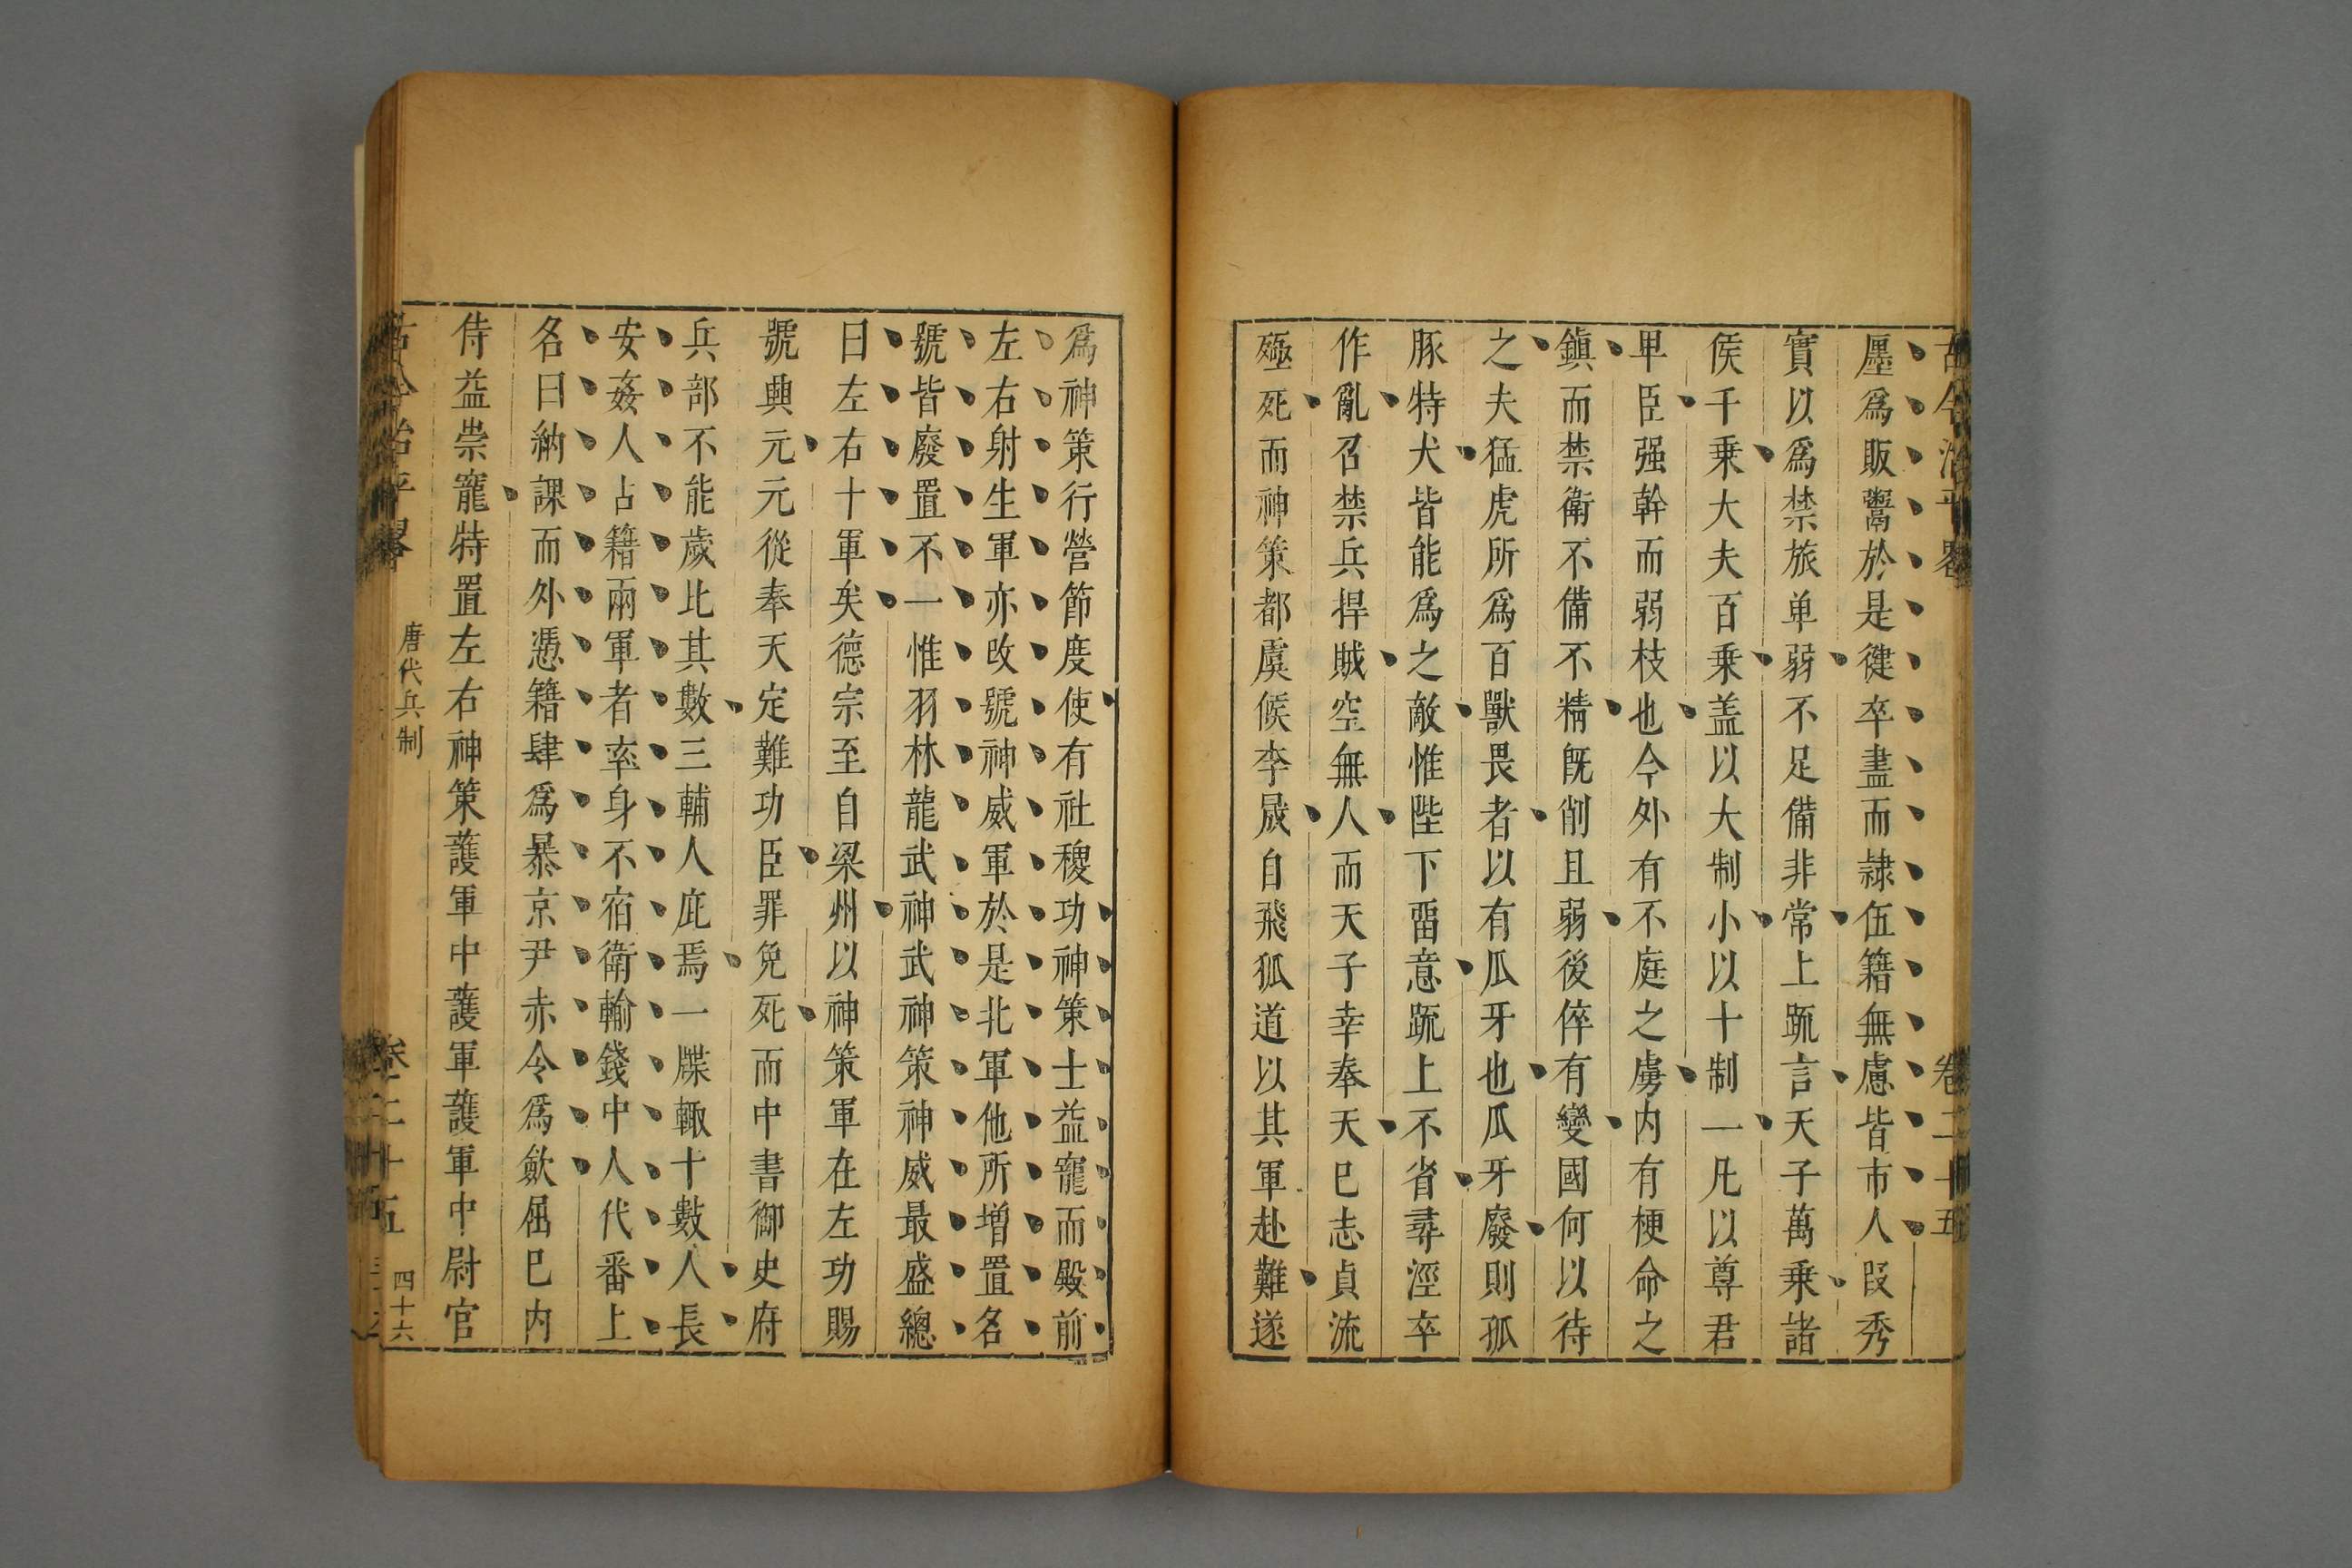 古今治平畧 卷二十五
廛爲販鬻於是徤卒盡而隷伍籍無慮皆市人叚秀
實以爲禁旅单弱不足備非常上䟽言天子萬乗諸
侯千乗大夫百乗盖以大制小以十制一凡以尊君
卑臣强幹而弱枝也今外有不庭之虜内有梗命之
鎮而禁衛不備不精既削且弱後倅有變國何以待
之夫猛虎所爲百獸畏者以有瓜牙也瓜牙廢則孤
豚特犬皆能爲之敵惟陛下畱意䟽上不省尋涇卒
作亂召禁兵捍賊空無人而天子幸奉天巳志貞流
殛死而神策都虞候李晟自飛狐道以其軍赴難遂
爲神策行營節度使有社稷功神策士益寵而殿前
左右射生軍亦改號神威軍於是北軍他所增置名
號皆廢置不一惟羽林龍武神武神策神威最盛總
曰左右十軍矣德宗至自梁州以神策軍在左功賜
號興元元從奉天定難功臣罪免死而中書御史府
兵部不能歲比其數三輔人庇焉一牒輙十數人長
安姦人占籍兩軍者率身不宿衛輸錢中人代番上
名曰納課而外憑籍肆爲暴京尹赤令爲歛屈巳内
侍益崇寵特置左右神策護軍中護軍護軍中尉官
古今治平畧 唐代兵制 卷二十五 四十六